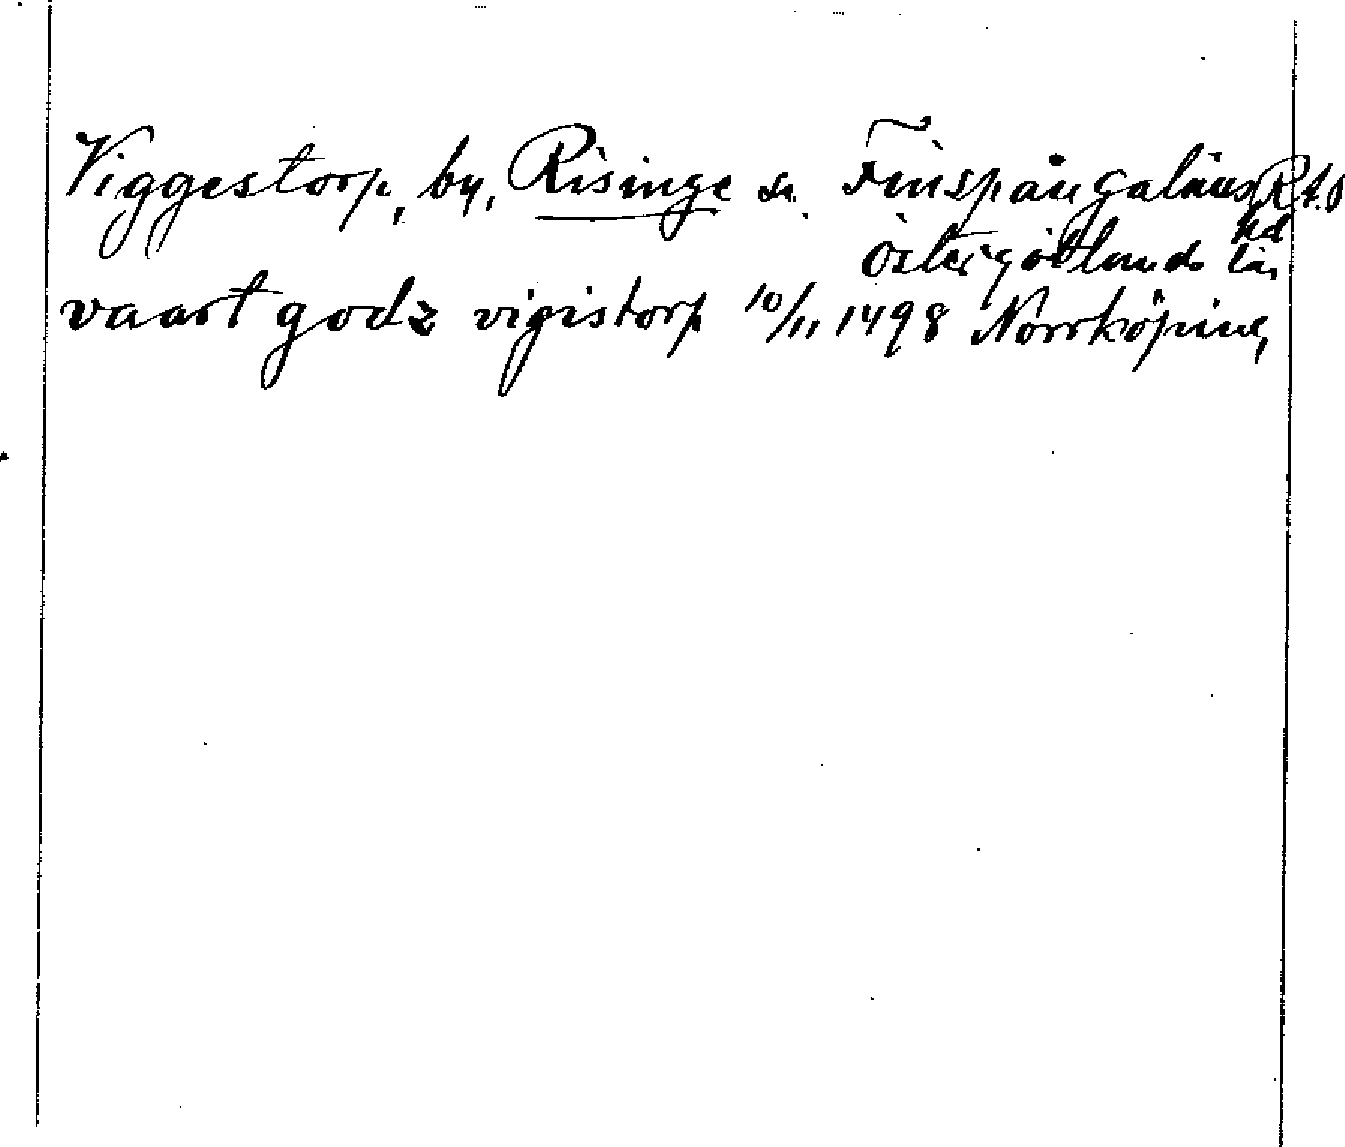 Viggestorp, by, Risinge sn. Finspångaläns hd
Östergötlands län
vaart godz vigistorp 10/11 1498 Norrköping,